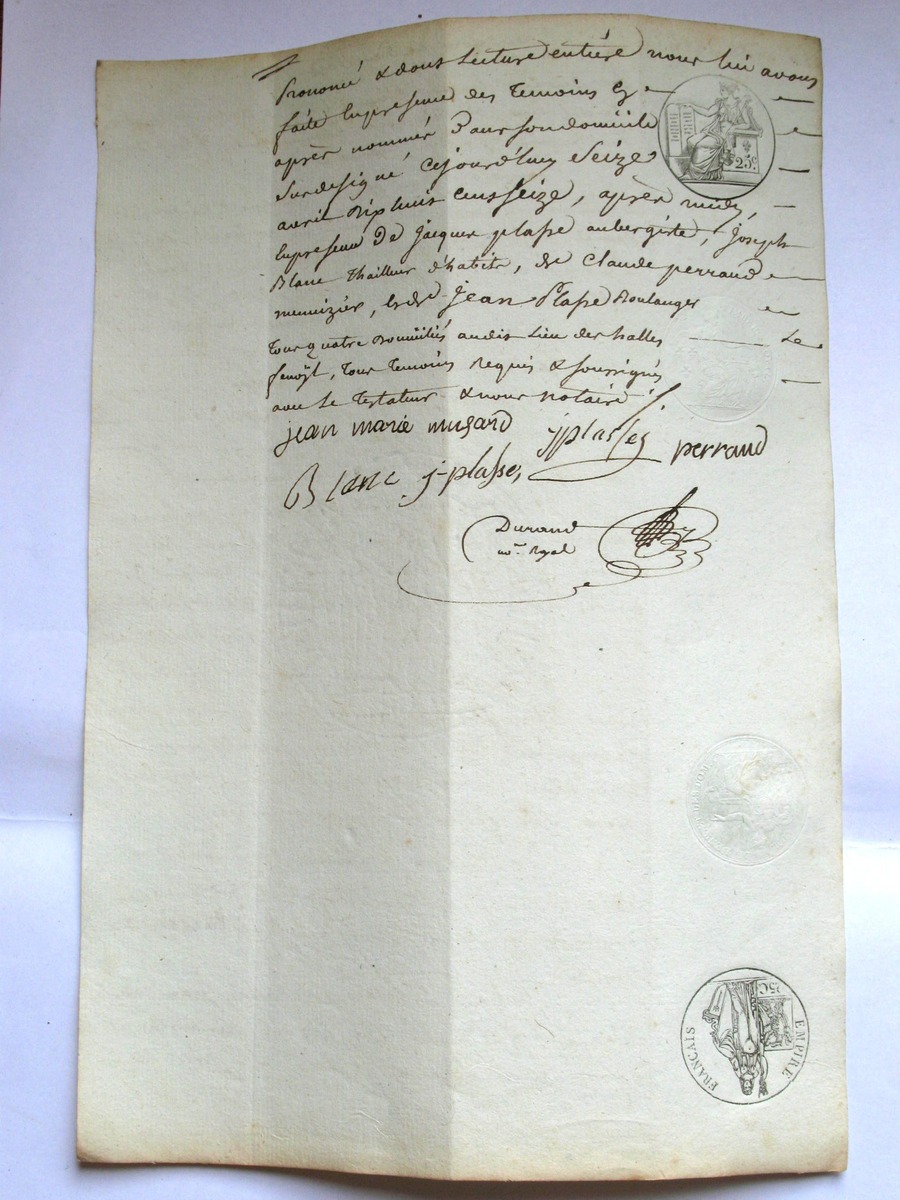 Prononcé & dont Lecture entiére nous lui avons
faite En presence des Temoins Cy
après nommés Dans son domicile
Surdesigné Cejourd'huy Seize
avril Dix huit cent seize, après midy,
En presence De Jacques plasse aubergiste, Joseph
Blanc Thailleur d'habits, de Claude perraud
menuizier, & de Jean Plasse Boulanger
Tous quatre Domiciliés audit Lieu des halles Le
fenoÿl, Tous Temoins Requis & soussignés
avec Le Testateur & nous notaire
jean marie musard jjplasse perraud
Blanc j-plasse,
Durand
no.re Royal
25c
EMPIRE
FRANÇAIS
25C